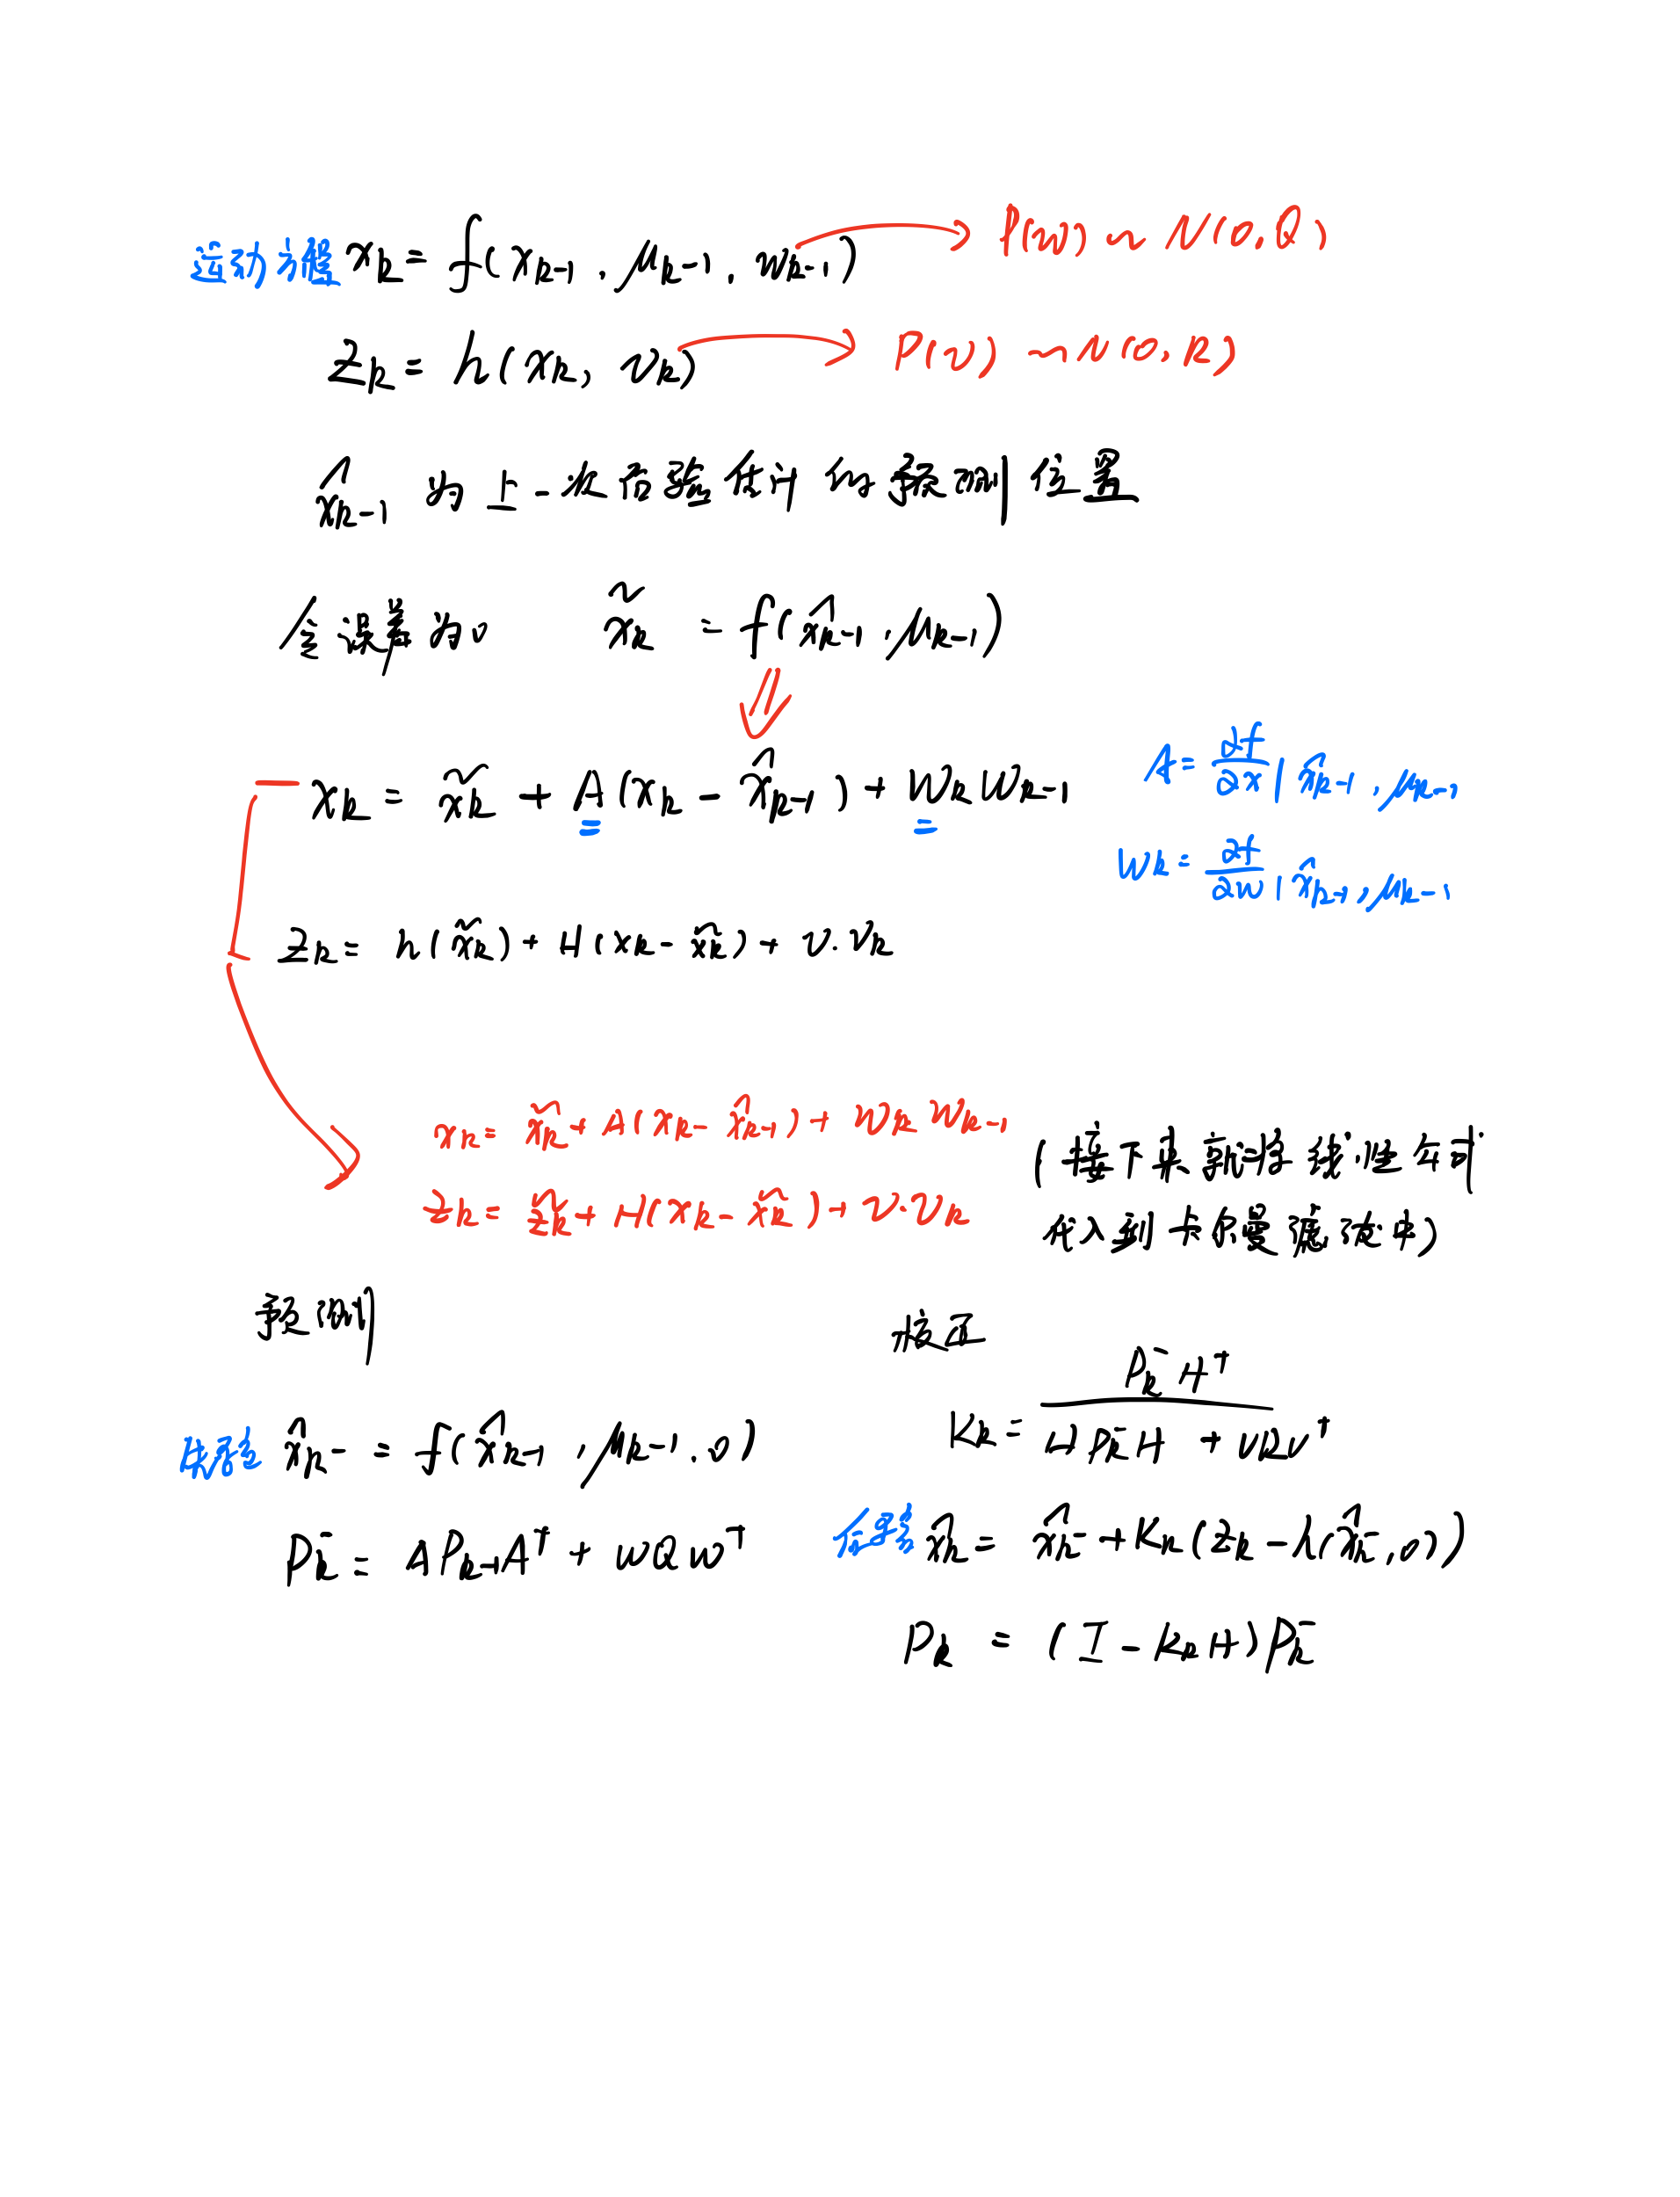 运动方程 x_k = f(x_{k-1}, μ_{k-1}, w_{k-1}) → P(w) ~ N(0,Q)
z_k = h(x_k, v_k) → P(v) ~ N(0,R)
x̂_{k-1} 为上一次后验估计的预测位置
令误差为0 x̃_k = f(x̂_{k-1}, μ_{k-1})
x_k = x̃_k + A(x_k - x̂_{k-1}) + W_k W_{k-1}
A = ∂f/∂x | x̂_{k-1}, μ_{k-1}
W_k = ∂f/∂w | x̂_{k-1}, μ_{k-1}
z_k = h(x̃_k) + H(x_k - x̃_k) + V·V_k
x_k = x̃_k + A(x_k - x̂_{k-1}) + W_k W_{k-1}
z_k = z̃_k + H(x_k - x̃_k) + V·V_k
(接下来就将线性公式
代入到卡尔曼滤波中)
预测
先验 x̂_k^- = f(x̂_{k-1}, μ_{k-1}, 0)
P_k^- = A P_{k-1} A^T + W Q W^T
校正
K_k = P_k^- H^T / (H P_k^- H + V R V^T)
后验 x̂_k = x̂_k^- + K_k(z_k - h(x̂_k^-, 0))
P_k = (I - K_k H) P_k^-